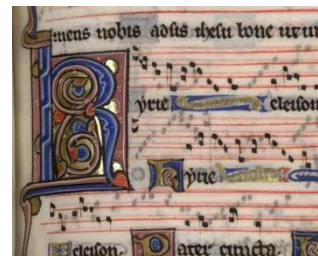 mens nobis adsis ihesu bone
Kyrie eleison
Kyrie
eleison. Pater cuncta. K